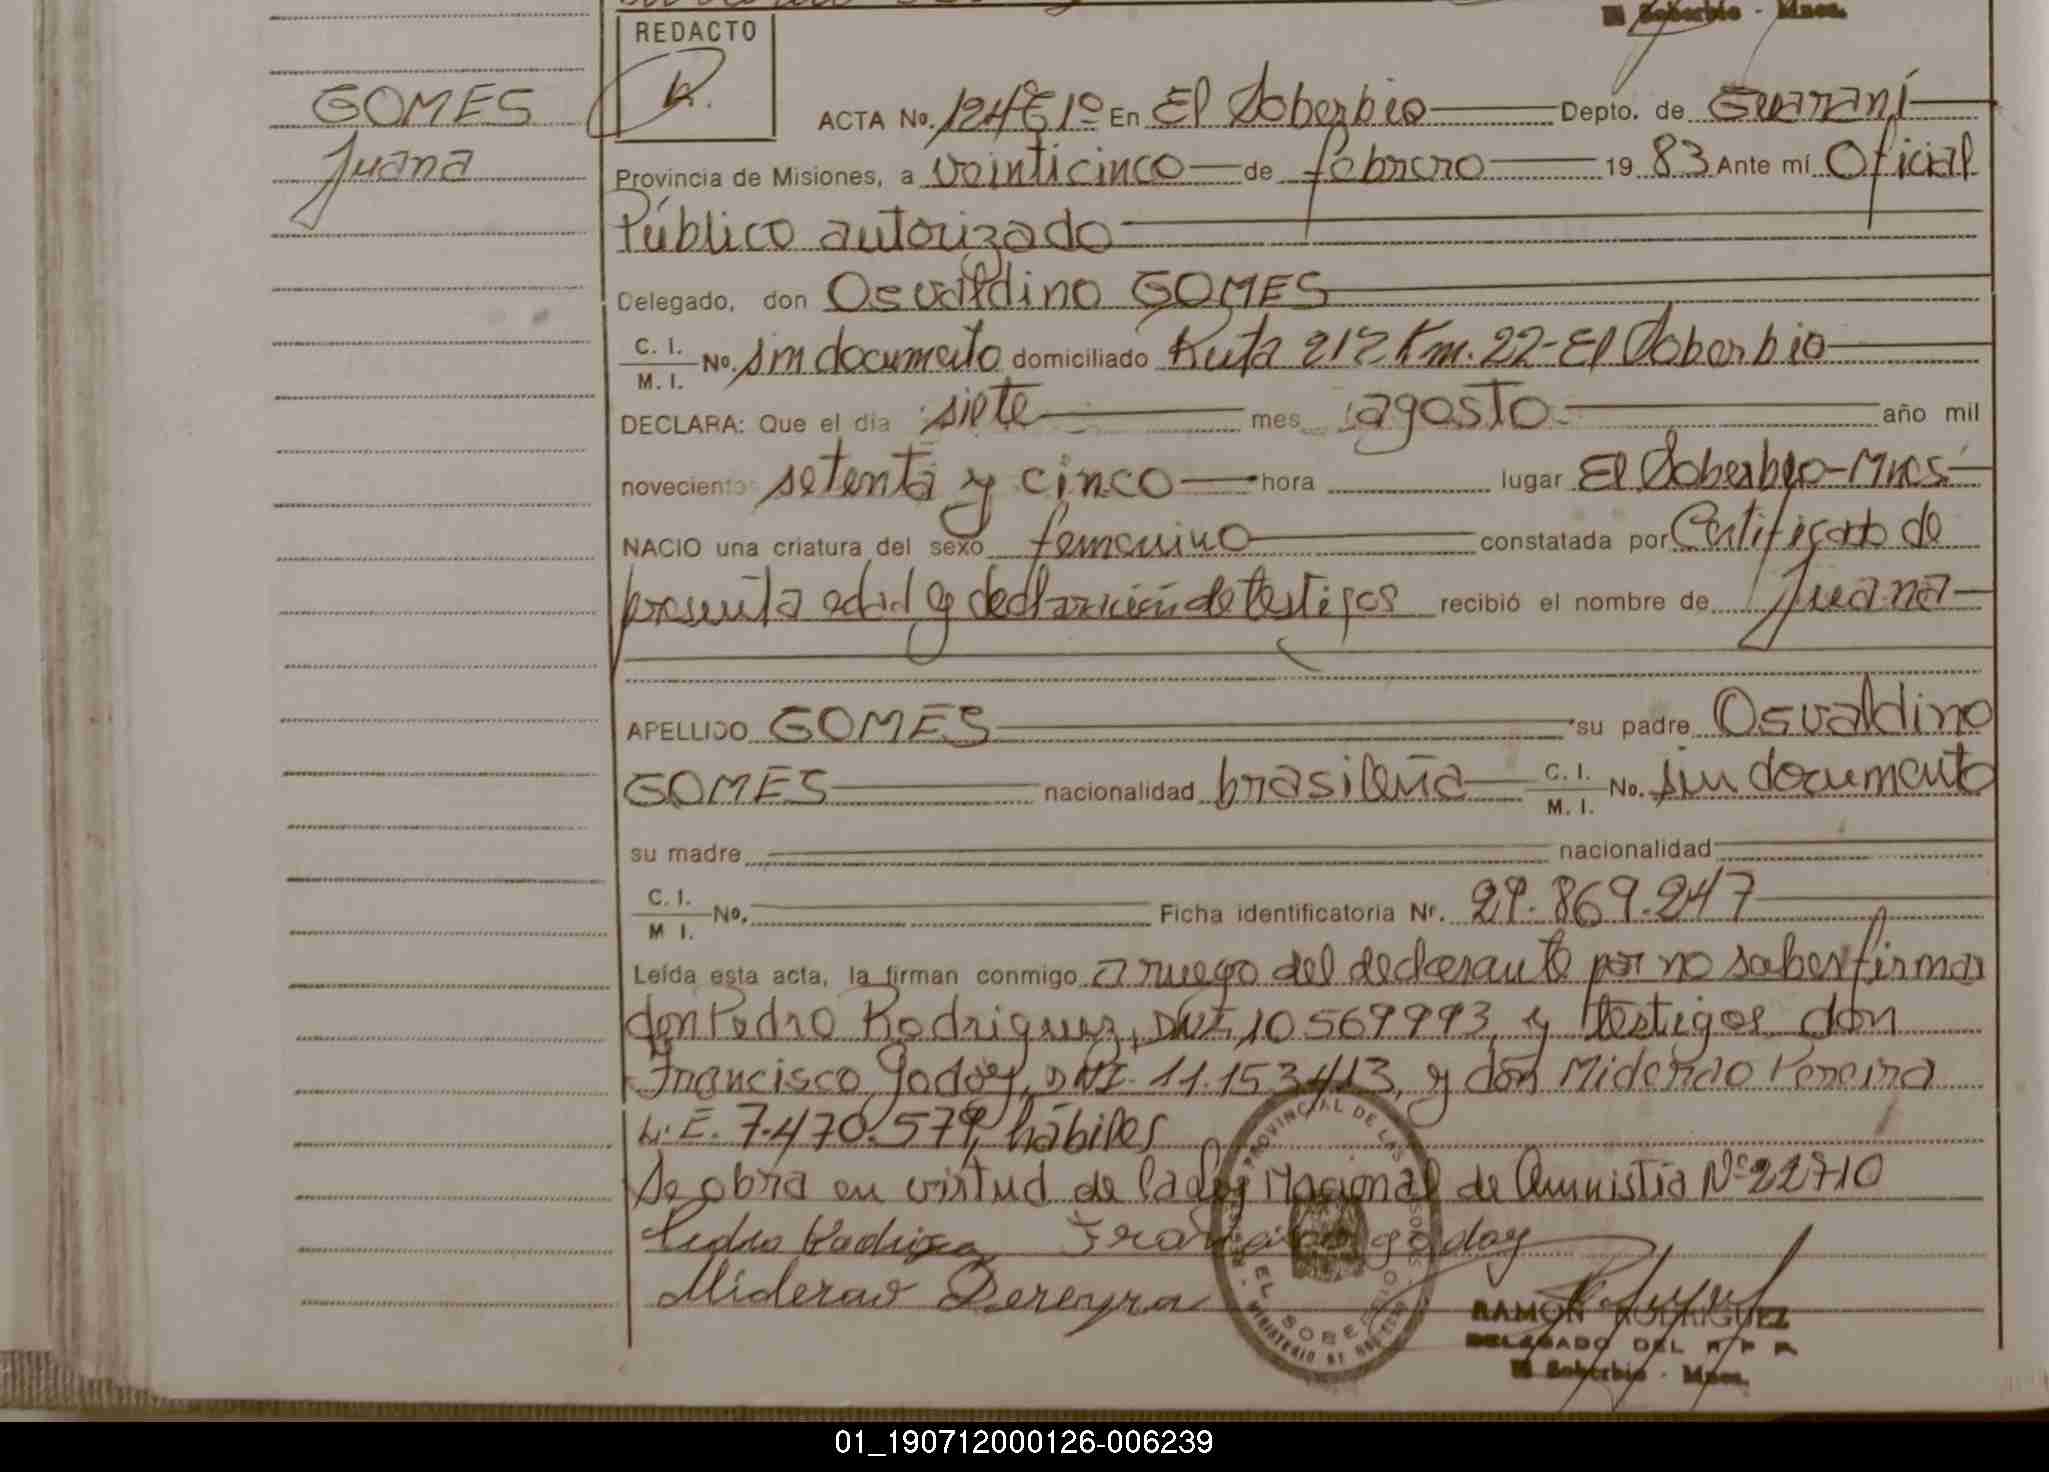 El Soberbio - Mnes.
REDACTO
GOMES
Juana
ACTA No. 124 T 1º En El Soberbio Depto. de Guaraní
Provincia de Misiones, a veinticinco de febrero 19 83 Ante mí Oficial
Público autorizado
Delegado, don Osvaldino GOMES
C. I. / M. I. No. sin documento domiciliado Ruta 212 Km. 22-El Soberbio
DECLARA: Que el día siete mes agosto año mil
novecientos setenta y cinco hora lugar El Soberbio-Mnes.
NACIO una criatura del sexo femenino constatada por Certificado de
presunta edad y declaración de testigos recibió el nombre de Juana
APELLIDO GOMES su padre Osvaldino
GOMES nacionalidad brasileña C. I. / M. I. No. sin documento
su madre nacionalidad
C. I. / M I. No. Ficha identificatoria Nr. 29.869.247
Leída esta acta, la firman conmigo a ruego del declarante por no saber firmar
don Pedro Rodriguez, DNI. 10569993, y testigos don
Francisco Godoy, DNI. 11.153413, y don Miderao Pereira
L.E. 7.470.579, hábiles
Se obra en virtud de la Ley Nacional de Amnistia Nº 22710
Pedro Rodriguez Francisco godoy
Miderao Pereyra
PROVINCIAL DE LAS PERSONAS
EL SOBERBIO
MINISTERIO DE GOBIERNO
RAMON RODRIGUEZ
DELEGADO DEL R P P
El Soberbio - Mnes.
01_190712000126-006239